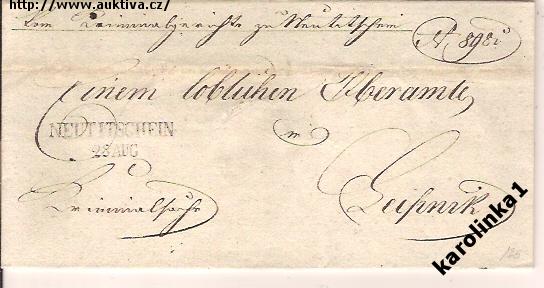 http://www.auktiva.cz/
Vom Criminalgerichte zu Neutitschein
N 898
Einem löblichen Oberamte
NEUTITSCHEIN
28 AUG
in
Criminalsache
Leipnik
karolinka1